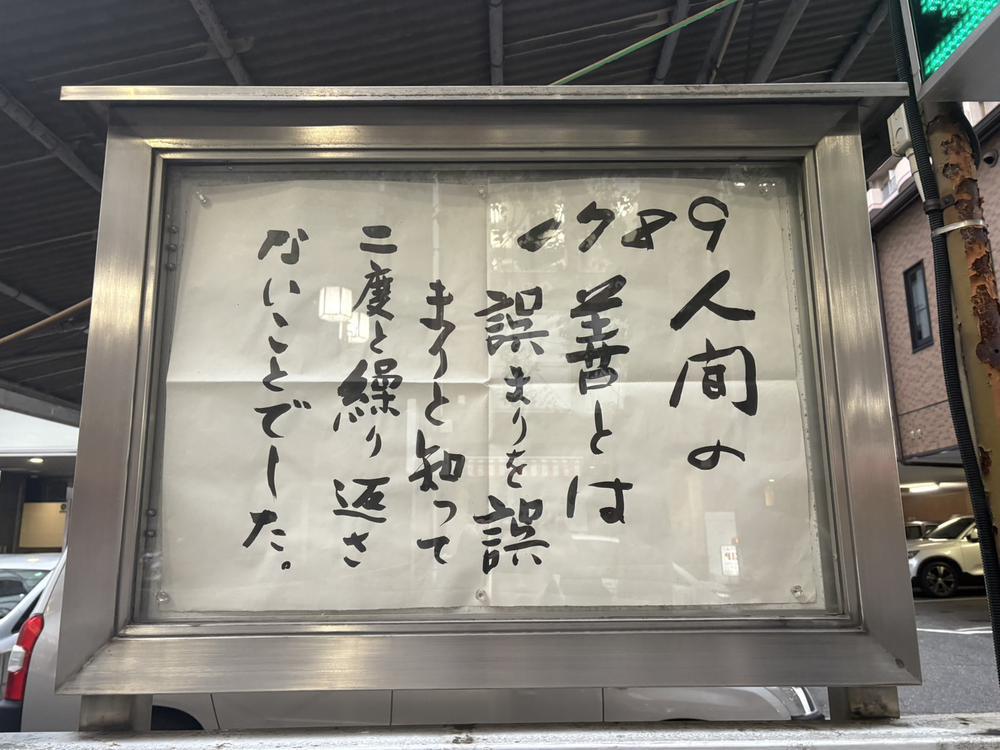 1789
人間の
善とは
誤まりを誤
まりと知って
二度と繰り返さ
ないことでした。